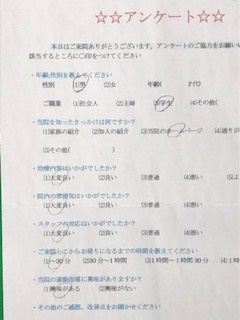 ☆☆アンケート☆☆
本日はご来院ありがとうございます。アンケートのご協力をお願い
該当するところに○印をつけてください
・年齢,性別を教えてください
性別 ⑴男 ⑵女 年齢( 才代)
ご職業 ⑴社会人 ⑵主婦 ⑶学生 ⑷その他(
・当院を知ったきっかけは何ですか?
⑴家族の紹介 ⑵知人の紹介 ⑶当院のホームページ ⑷通り
⑸その他( )
・治療内容はいかがでしたか?
⑴大変良い ⑵良い ⑶普通 ⑷悪い
・院内の雰囲気はいかがでしたか?
⑴大変良い ⑵良い ⑶普通 ⑷悪い
・スタッフの対応はいかがでしたか?
⑴大変良い ⑵良い ⑶普通 ⑷悪い
・ご来院してからお帰りになるまでの時間を教えてください
⑴~30分 ⑵30分~1時間 ⑶1時間~1時間30分 ⑷1
・当院の運動指導に興味がありますか?
⑴興味がある ⑵興味がない
・その他のご感想、改善点をお聞かせください